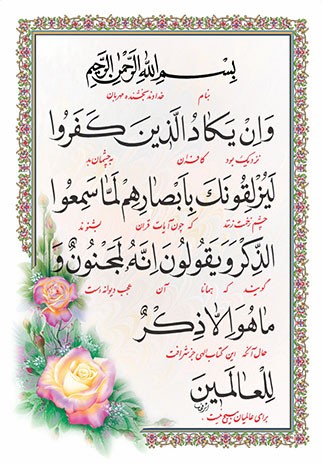 بِسْمِ اللهِ الرَّحْمٰنِ الرَّحِيمِ
بنام خداوند بخشنده مهربان
وَاِنْ يَكادُ الَّذينَ كَفَرُوا
نزدیک بود کافران به چشمان بد
لَيُزْلِقُونَكَ بِاَبْصارِهِمْ لَمَّا سَمِعُوا
چشم زخمت زنند که چون آیات قرآن بشنوند
الذِّكْرَ وَيَقُولُونَ اِنَّهُ لَمَجْنُونٌ وَ
گویند که همانا آن عجب دیوانه است
ما هُوَ اِلاّ ذِكْرٌ
حال آنکه این کتاب الهی جز شرافت
لِلْعالَمينَ
برای عالمیان هیچ نیست .